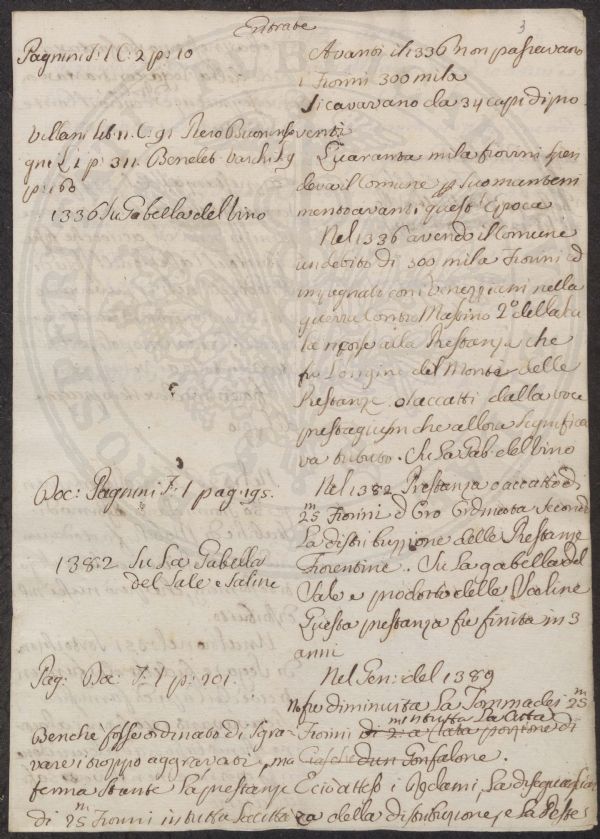 Entrate
3
Pagnini T: 1 C: 2 p: 10
Avanti il 1336 non passavano
i Fiorini 300 mila
Si cavavano da 34 capi di pro
venti
Villani lib: 11. C: 91
p: 311. Bened: Varchi
p: 160
Quaranta mila fiorini spen
deva il Comune p suo manteni
mento avanti quest'Epoca
1336 Su Gabella del Vino
Nel 1336 avendo il Comune
un debito di 300 mila Fiorini ed
impegnati con i Veneziani nella
guerra contro Mastino 2º della Sca
la ricorse alla Prestanza che
fu l'origine del Monte delle
Prestanze o accatti dalla voce
prestaquium che allora significa
va tributo. Su la Gab: del Vino
Doc: Pagnini T: 1 pag: 195.
Nel 1382 Prestanza o accatto di
25 m Fiorini d'Oro Ordinata secondo
la distribuzione delle Prestanze
Fiorentine. Su la gabella del
Sale e prodotto delle Saline
1382 Su La Gabella
del Sale e Saline
Questa prestanza fu finita in 3
anni
Pag: Doc: T: 1 p: 201.
Nel Gen: del 1389
fu diminuita la Somma dei 25 m
Fiorini
in tutta la Citta
d'un Gonfalone.
Benche fosse ordinato di sgra
vare i troppo aggravati, ma
ferma stante la prestanza
di 25 m Fiorini in tutta la Citta
E ciò atteso i Reclami, la disuguaglian
za della distribuzione, e la Peste